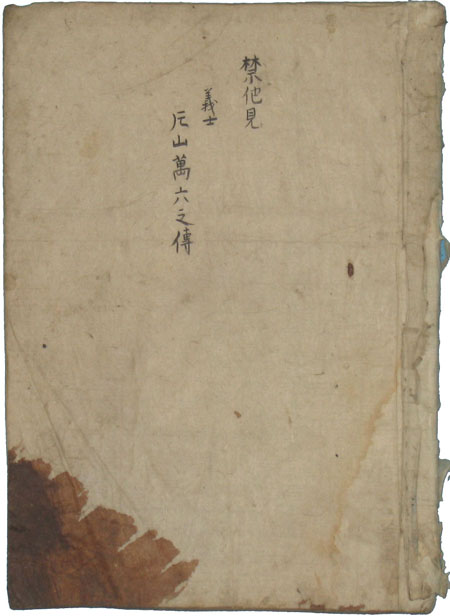 禁他見
義士
片山萬六之傳